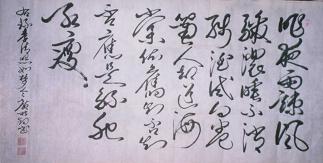 昨夜雨疎風
驟濃睡不消
殘酒試問卷
簾人却道海
棠依舊知否知
否應是綠肥
紅瘦
李清照如夢令